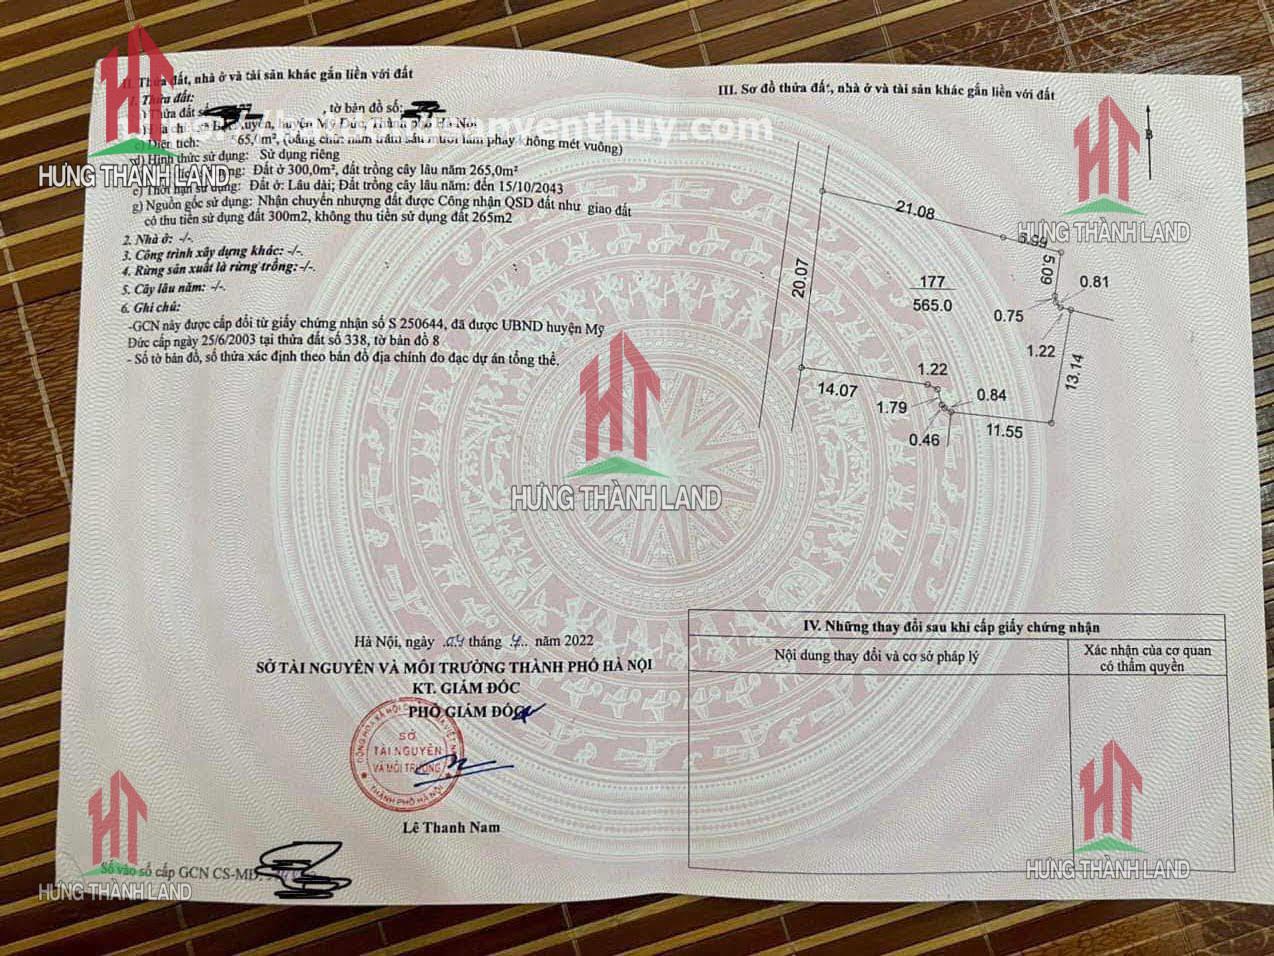 II. Thửa đất, nhà ở và tài sản khác gắn liền với đất
1. Thửa đất:
Thửa đất số , tờ bản đồ số:
huyện Mỹ Đức, Thành phố Hà Nội
c) Diện tích: 565,0m², (Bằng chữ: năm trăm sáu mươi lăm phẩy không mét vuông)
d) Hình thức sử dụng: Sử dụng riêng
Đất ở 300,0m², đất trồng cây lâu năm 265,0m²
e) Thời hạn sử dụng: Đất ở: Lâu dài; Đất trồng cây lâu năm: đến 15/10/2043
g) Nguồn gốc sử dụng: Nhận chuyển nhượng đất được Công nhận QSD đất như giao đất
có thu tiền sử dụng đất 300m2, không thu tiền sử dụng đất 265m2
2. Nhà ở: -/-.
3. Công trình xây dựng khác: -/-.
4. Rừng sản xuất là rừng trồng:-/-.
5. Cây lâu năm: -/-.
6. Ghi chú:
-GCN này được cấp đổi từ giấy chứng nhận số S 250644, đã được UBND huyện Mỹ
Đức cấp ngày 25/6/2003 tại thửa đất số 338, tờ bản đồ 8
- Số tờ bản đồ, số thửa xác định theo bản đồ địa chính đo đạc dự án tổng thể.
Hà Nội, ngày 04 tháng 7 năm 2022
SỞ TÀI NGUYÊN VÀ MÔI TRƯỜNG THÀNH PHỐ HÀ NỘI
KT. GIÁM ĐỐC
PHÓ GIÁM ĐỐC
SỞ
TÀI NGUYÊN
VÀ MÔI TRƯỜNG
THÀNH PHỐ HÀ NỘI
Lê Thanh Nam
Số vào sổ cấp GCN CS-MĐ:
III. Sơ đồ thửa đất, nhà ở và tài sản khác gắn liền với đất
B
21.08
5.09
20.07
177
565.0
0.81
0.75
1.22
13.14
1.22
14.07
1.79
0.84
0.46
11.55
IV. Những thay đổi sau khi cấp giấy chứng nhận
Nội dung thay đổi và cơ sở pháp lý
Xác nhận của cơ quan
có thẩm quyền
HƯNG THÀNH LAND
HƯNG THÀNH LAND
HƯNG THÀNH LAND
HƯNG THÀNH LAND
HƯNG THÀNH LAND